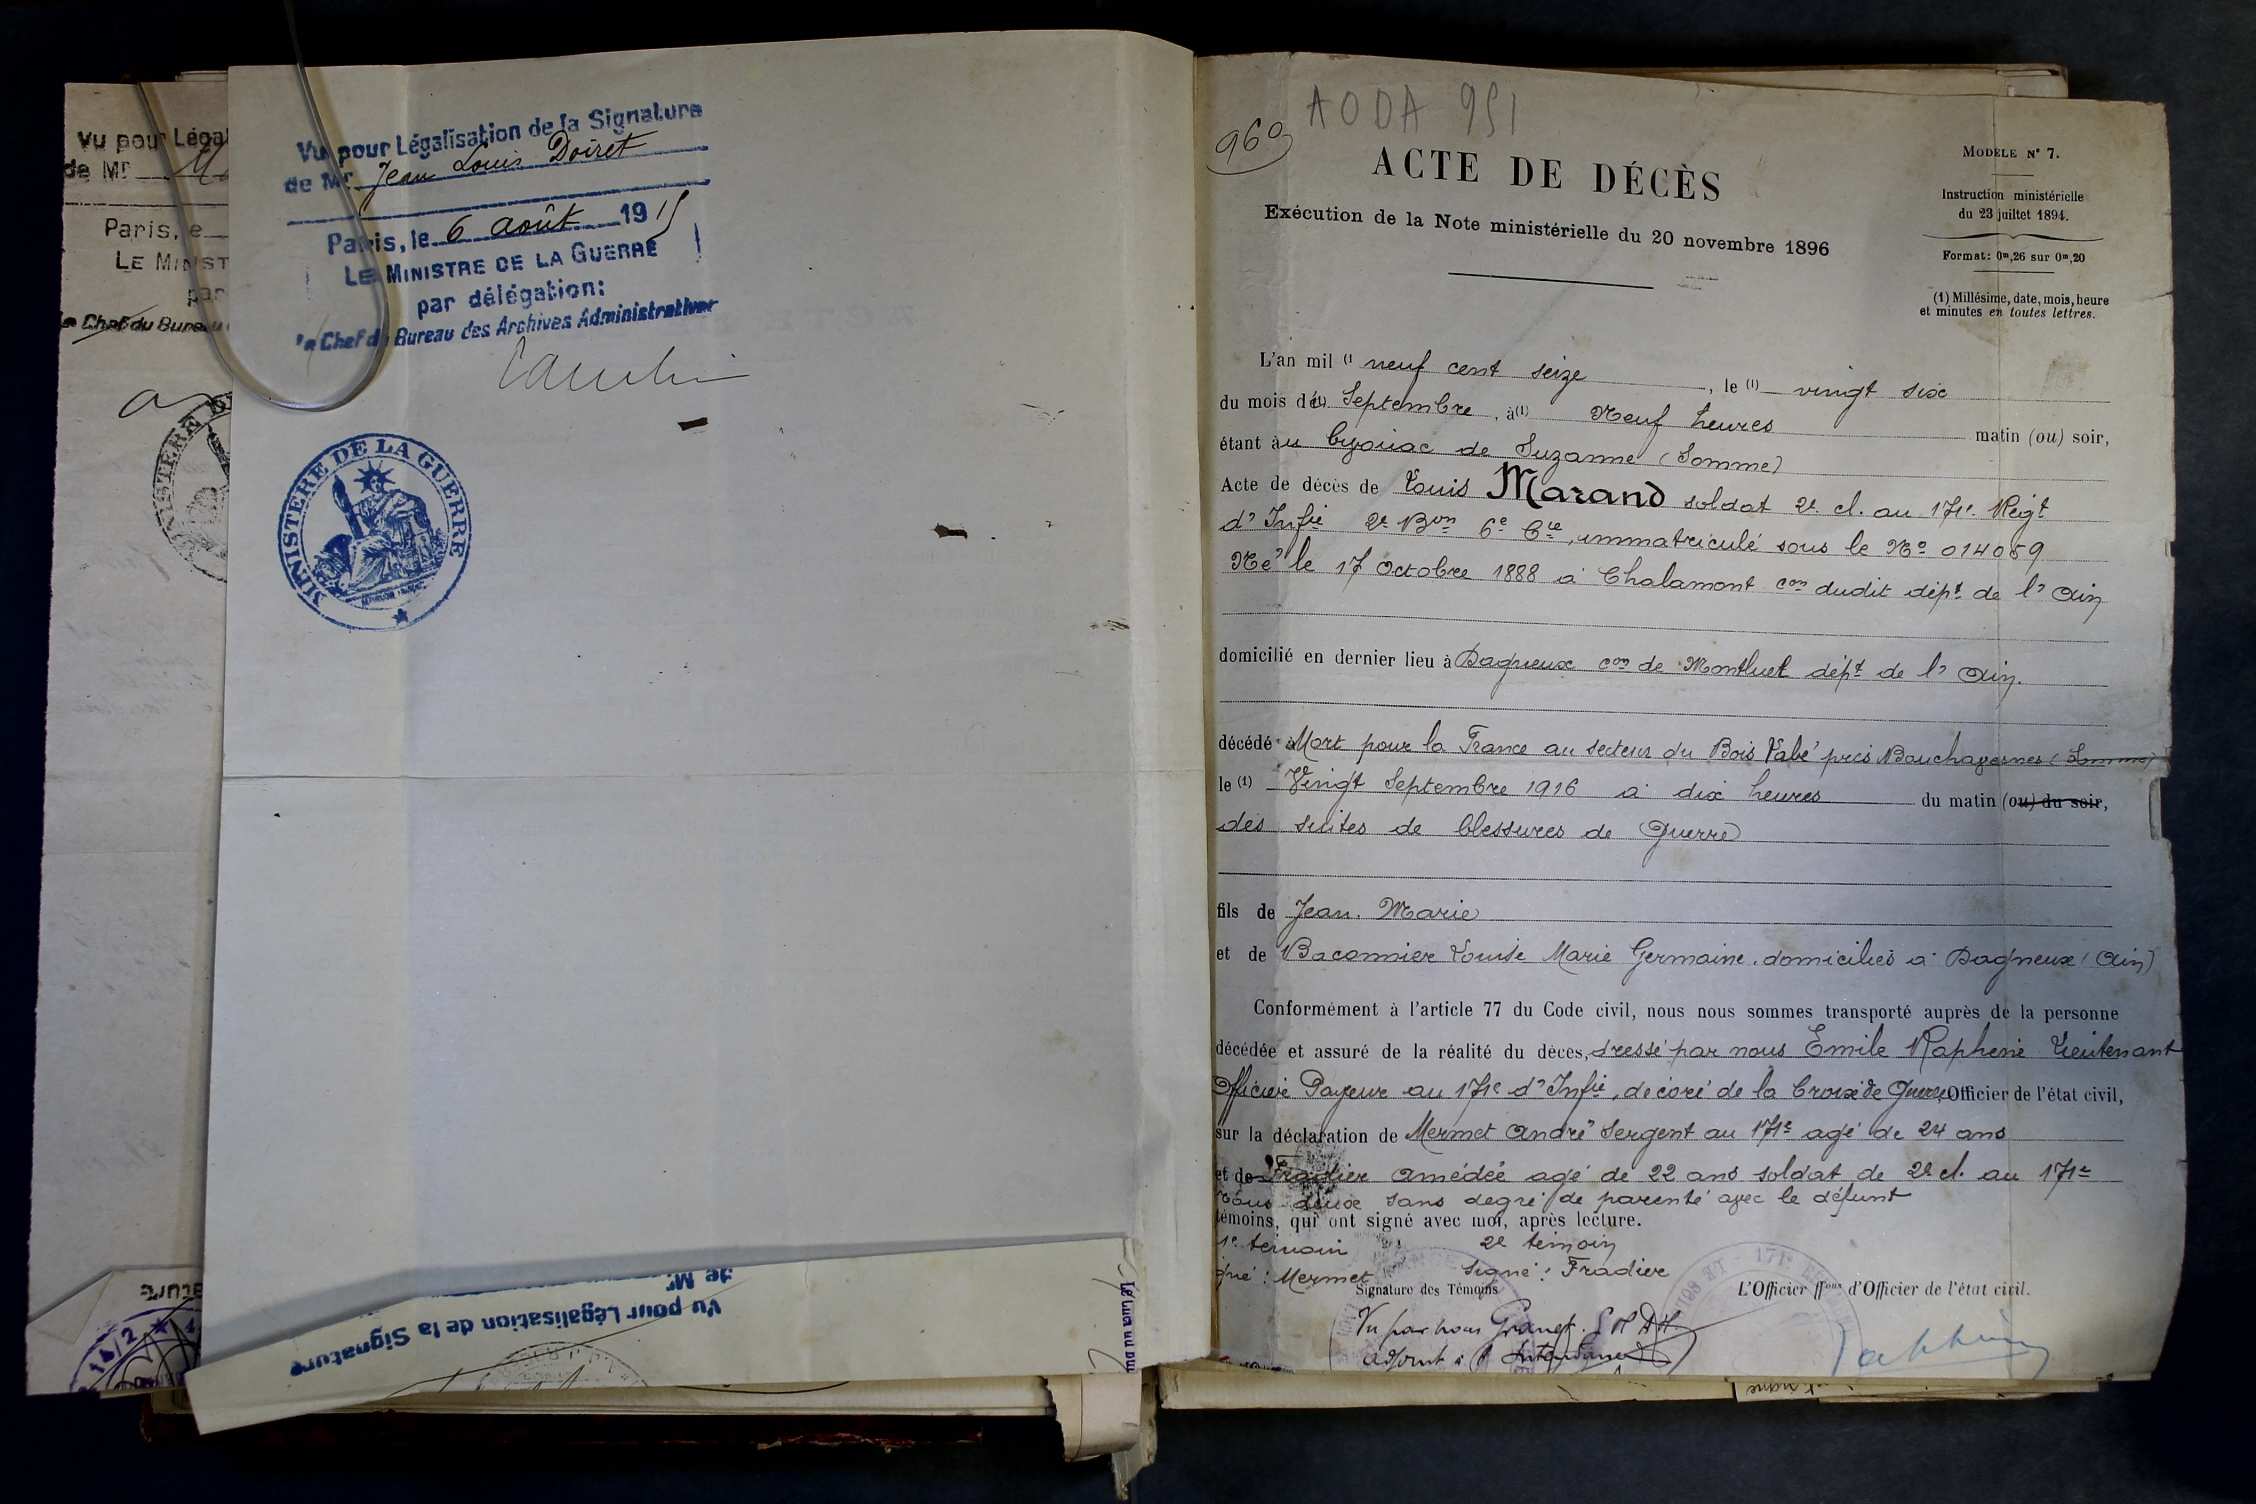 Vu pour Légal
de Mr
Paris, le
LE MINIST
par
Chef du Bureau
MINISTERE DE
Vu pour Légalisation de la Signature
de Mr Jean Louis Doiret
Paris, le 6 août 1915
LE MINISTRE DE LA GUERRE
par délégation:
le Chef du Bureau des Archives Administratives
MINISTERE DE LA GUERRE
de Mr
Vu pour Légalisation de la Signature
AODA 951
960
ACTE DE DÉCÈS
Exécution de la Note ministérielle du 20 novembre 1896
MODÈLE N° 7.
Instruction ministérielle
du 23 juillet 1894.
Format: 0m,26 sur 0m,20
(1) Millésime, date, mois, heure
et minutes en toutes lettres.
L'an mil (1 neuf cent seize, le (1) vingt six
du mois de (1) Septembre, à (1) Neuf heures matin (ou) soir,
étant au byouac de Suzanne (Somme)
Acte de décès de Louis Marand soldat 2e cl. au 171e Regt
d'Infie 2e Bon 6e Cie, immatriculé sous le No 014059
Né le 17 Octobre 1888 à Chalamont con dudit dépt de l'Ain
domicilié en dernier lieu à Dagneux con de Montluel dépt de l'Ain.
décédé à Mort pour la France au secteur du Bois Labé près Bouchavesnes (Somme)
le (1) Vingt Septembre 1916 à dix heures du matin (ou) du soir,
des suites de blessures de Guerre
fils de Jean. Marie
et de Baconnier Louise Marie Germaine. domiciliés à Dagneux (Ain)
Conformément à l'article 77 du Code civil, nous nous sommes transporté auprès de la personne
décédée et assuré de la réalité du décès, dressé par nous Emile Lieutenant
Officier Payeur au 171e d'Infie, décoré de la Croix de Guerre, Officier de l'état civil,
sur la déclaration de Mermet André Sergent au 171e agé de 24 ans
et de Fradier Amédée agé de 22 ans soldat de 2e cl. au 171e
Tous deux sans degré de parenté avec le défunt
témoins, qui ont signé avec moi, après lecture.
1e témoin 2e témoin
gné: Mermet Signé: Fradier
Signature des Témoins
L'Officier ffons d'Officier de l'état civil.
Vu par nous
adjoint à l'Intendance